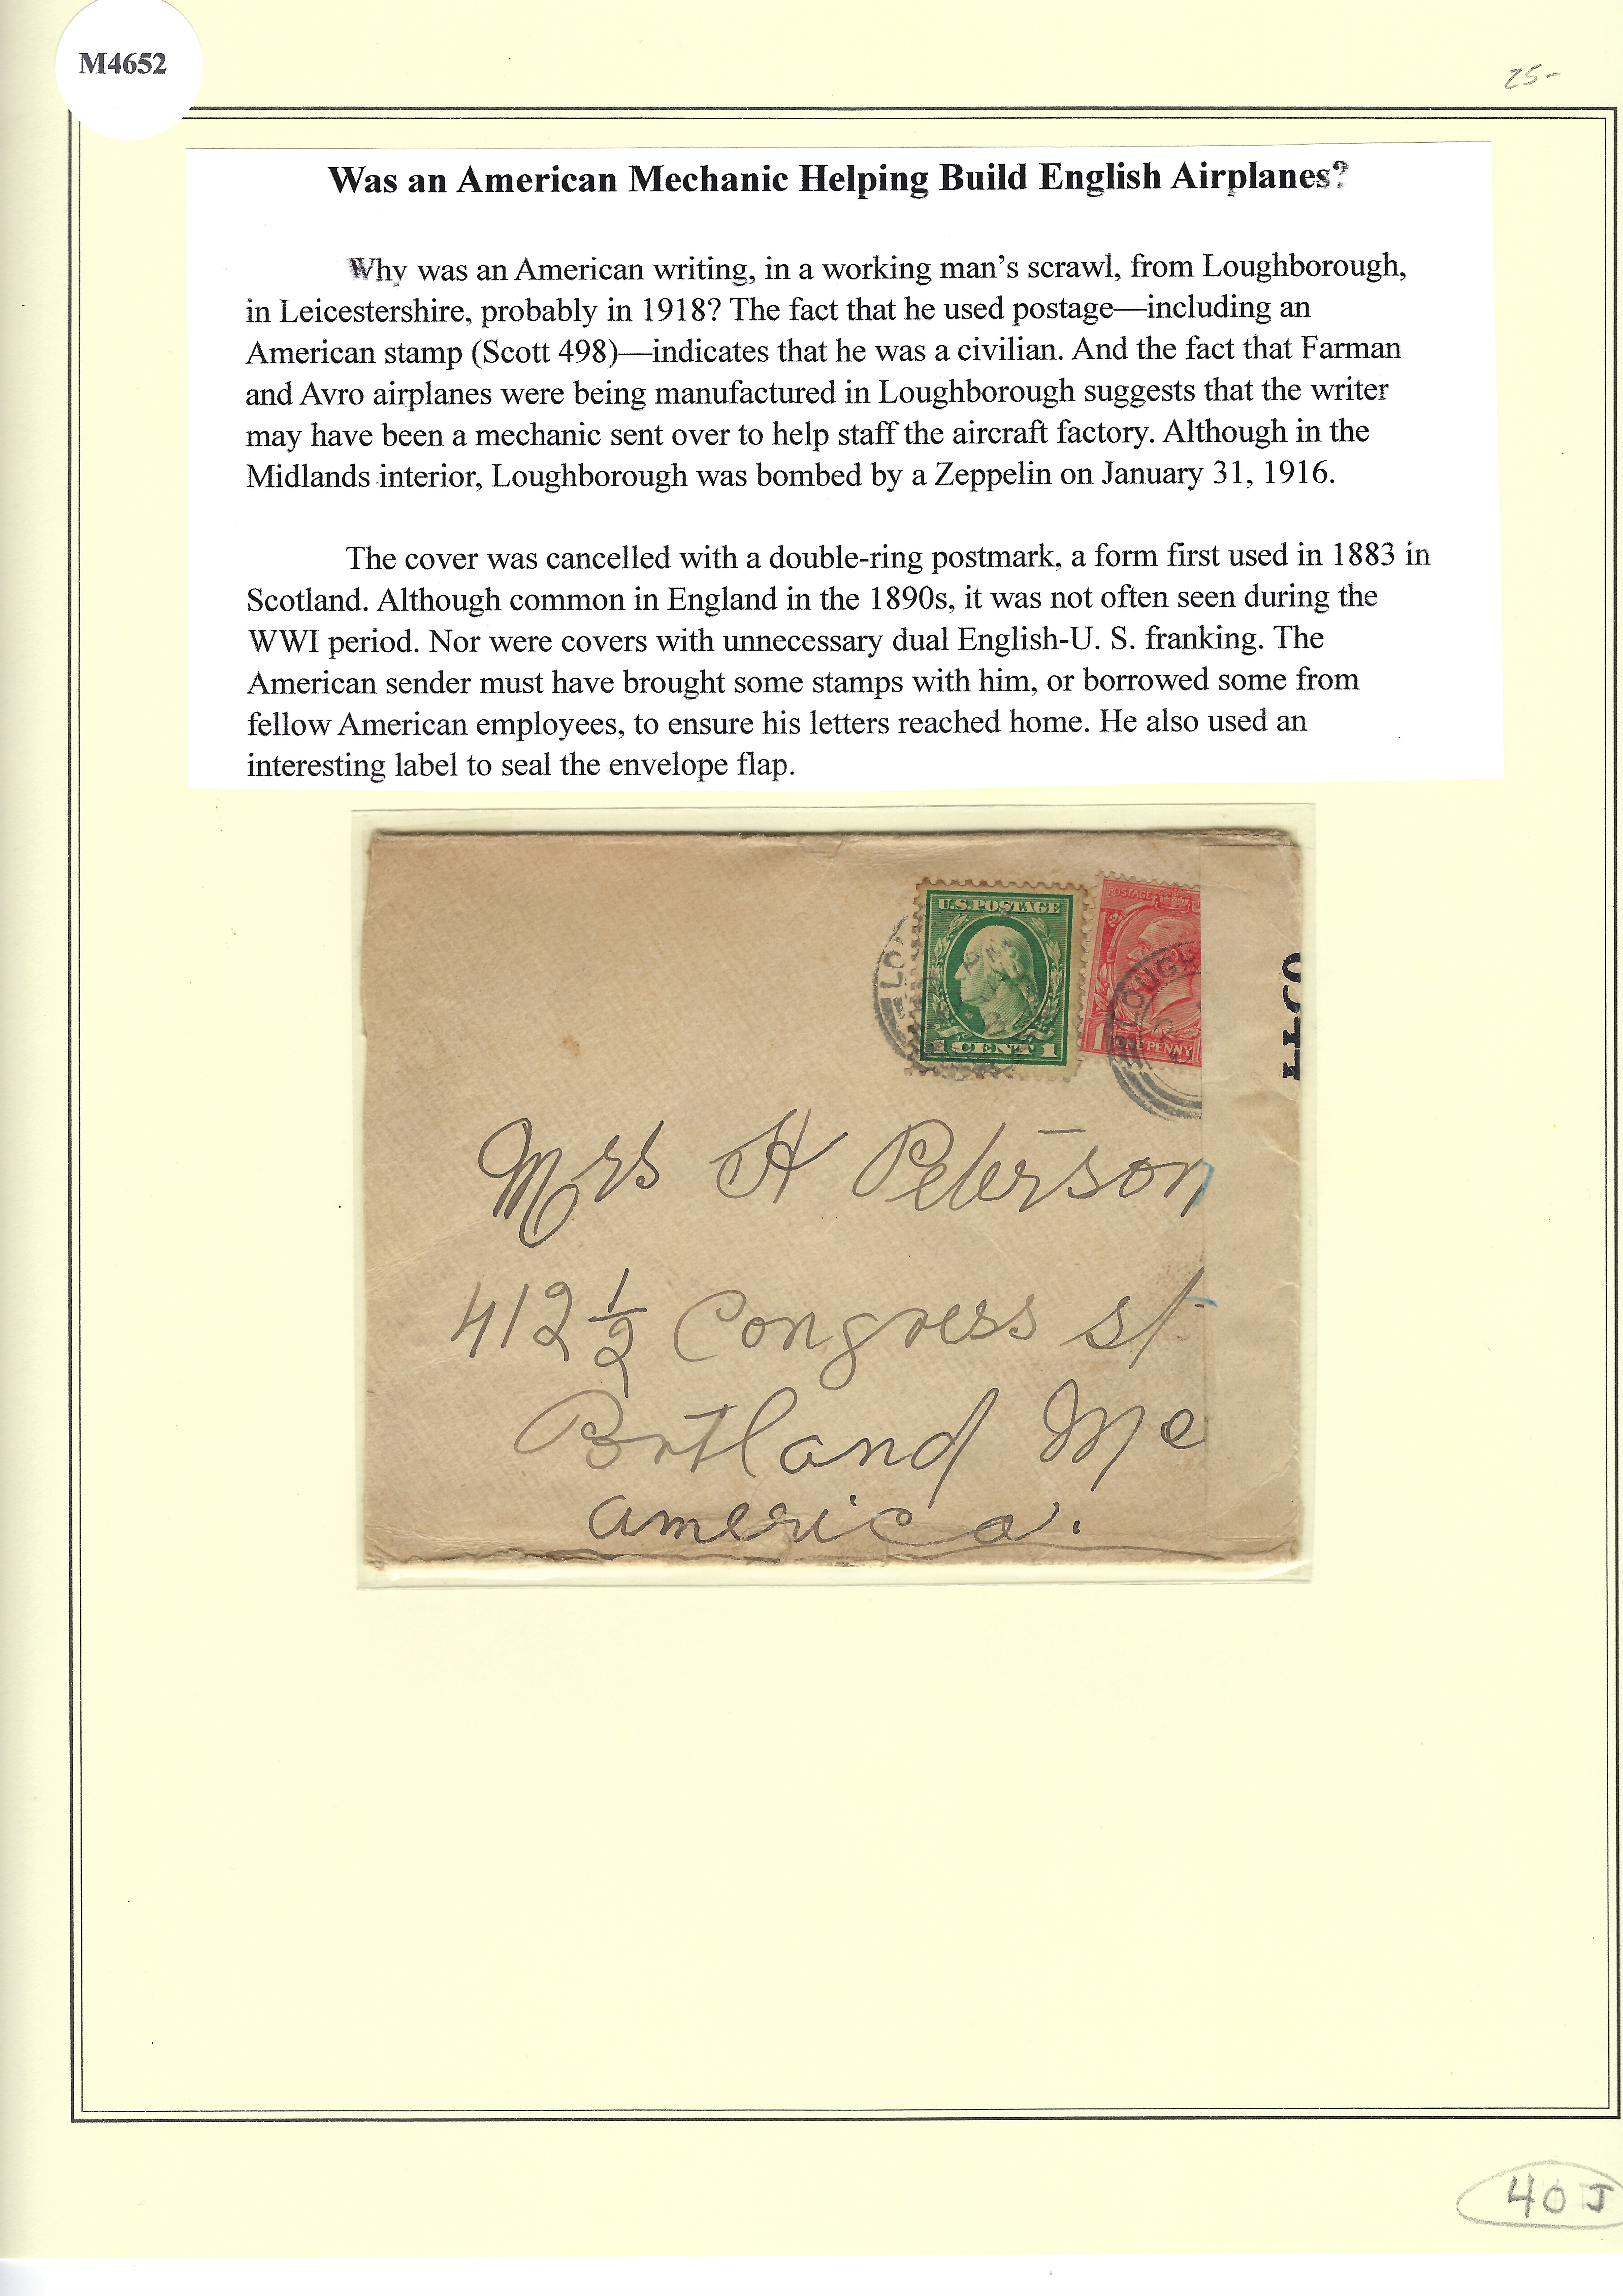 M4652
25-
Was an American Mechanic Helping Build English Airplanes?
Why was an American writing, in a working man's scrawl, from Loughborough,
in Leicestershire, probably in 1918? The fact that he used postage—including an
American stamp (Scott 498)—indicates that he was a civilian. And the fact that Farman
and Avro airplanes were being manufactured in Loughborough suggests that the writer
may have been a mechanic sent over to help staff the aircraft factory. Although in the
Midlands interior, Loughborough was bombed by a Zeppelin on January 31, 1916.
The cover was cancelled with a double-ring postmark, a form first used in 1883 in
Scotland. Although common in England in the 1890s, it was not often seen during the
WWI period. Nor were covers with unnecessary dual English-U. S. franking. The
American sender must have brought some stamps with him, or borrowed some from
fellow American employees, to ensure his letters reached home. He also used an
interesting label to seal the envelope flap.
U.S.POSTAGE
1 CENT 1
POSTAGE
ONE PENNY
LOUGH
Mrs H Peterson
412 1/2 Congress st
Portland Me
america.
40 J